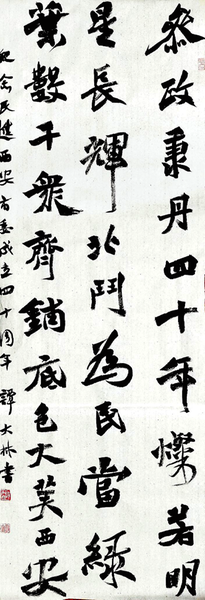 叅政秉丹四十年燦若明
星長輝北鬥為民當綠
葉數千衆齊鋪底色大美西安
纪念民建西安市委成立四十周年譚大林書